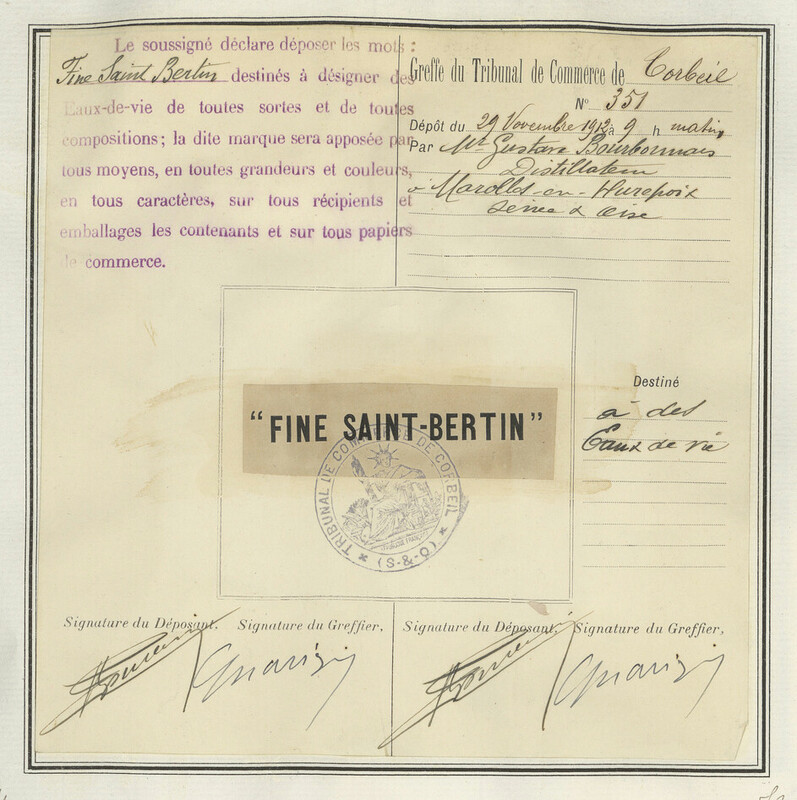 Le soussigné déclare déposer les mots :
Fine Saint Bertin destinés à désigner des
Eaux-de-vie de toutes sortes et de toutes
compositions; la dite marque sera apposée par
tous moyens, en toutes grandeurs et couleurs,
en tous caractères, sur tous récipients et
emballages les contenants et sur tous papiers
de commerce.
Greffe du Tribunal de Commerce de Corbeil
N° 351
Dépôt du 29 Novembre 1912 à 9 h matin
Par Mr Gustave Bourbonnais
Distillateur
à Marolles-en-Hurepoix
Seine & Oise
"FINE SAINT-BERTIN"
TRIBUNAL DE COMMERCE DE CORBEIL
(S-&-O)
Destiné
à des
Eaux de vie
Signature du Déposant. Signature du Greffier,
Signature du Déposant. Signature du Greffier,